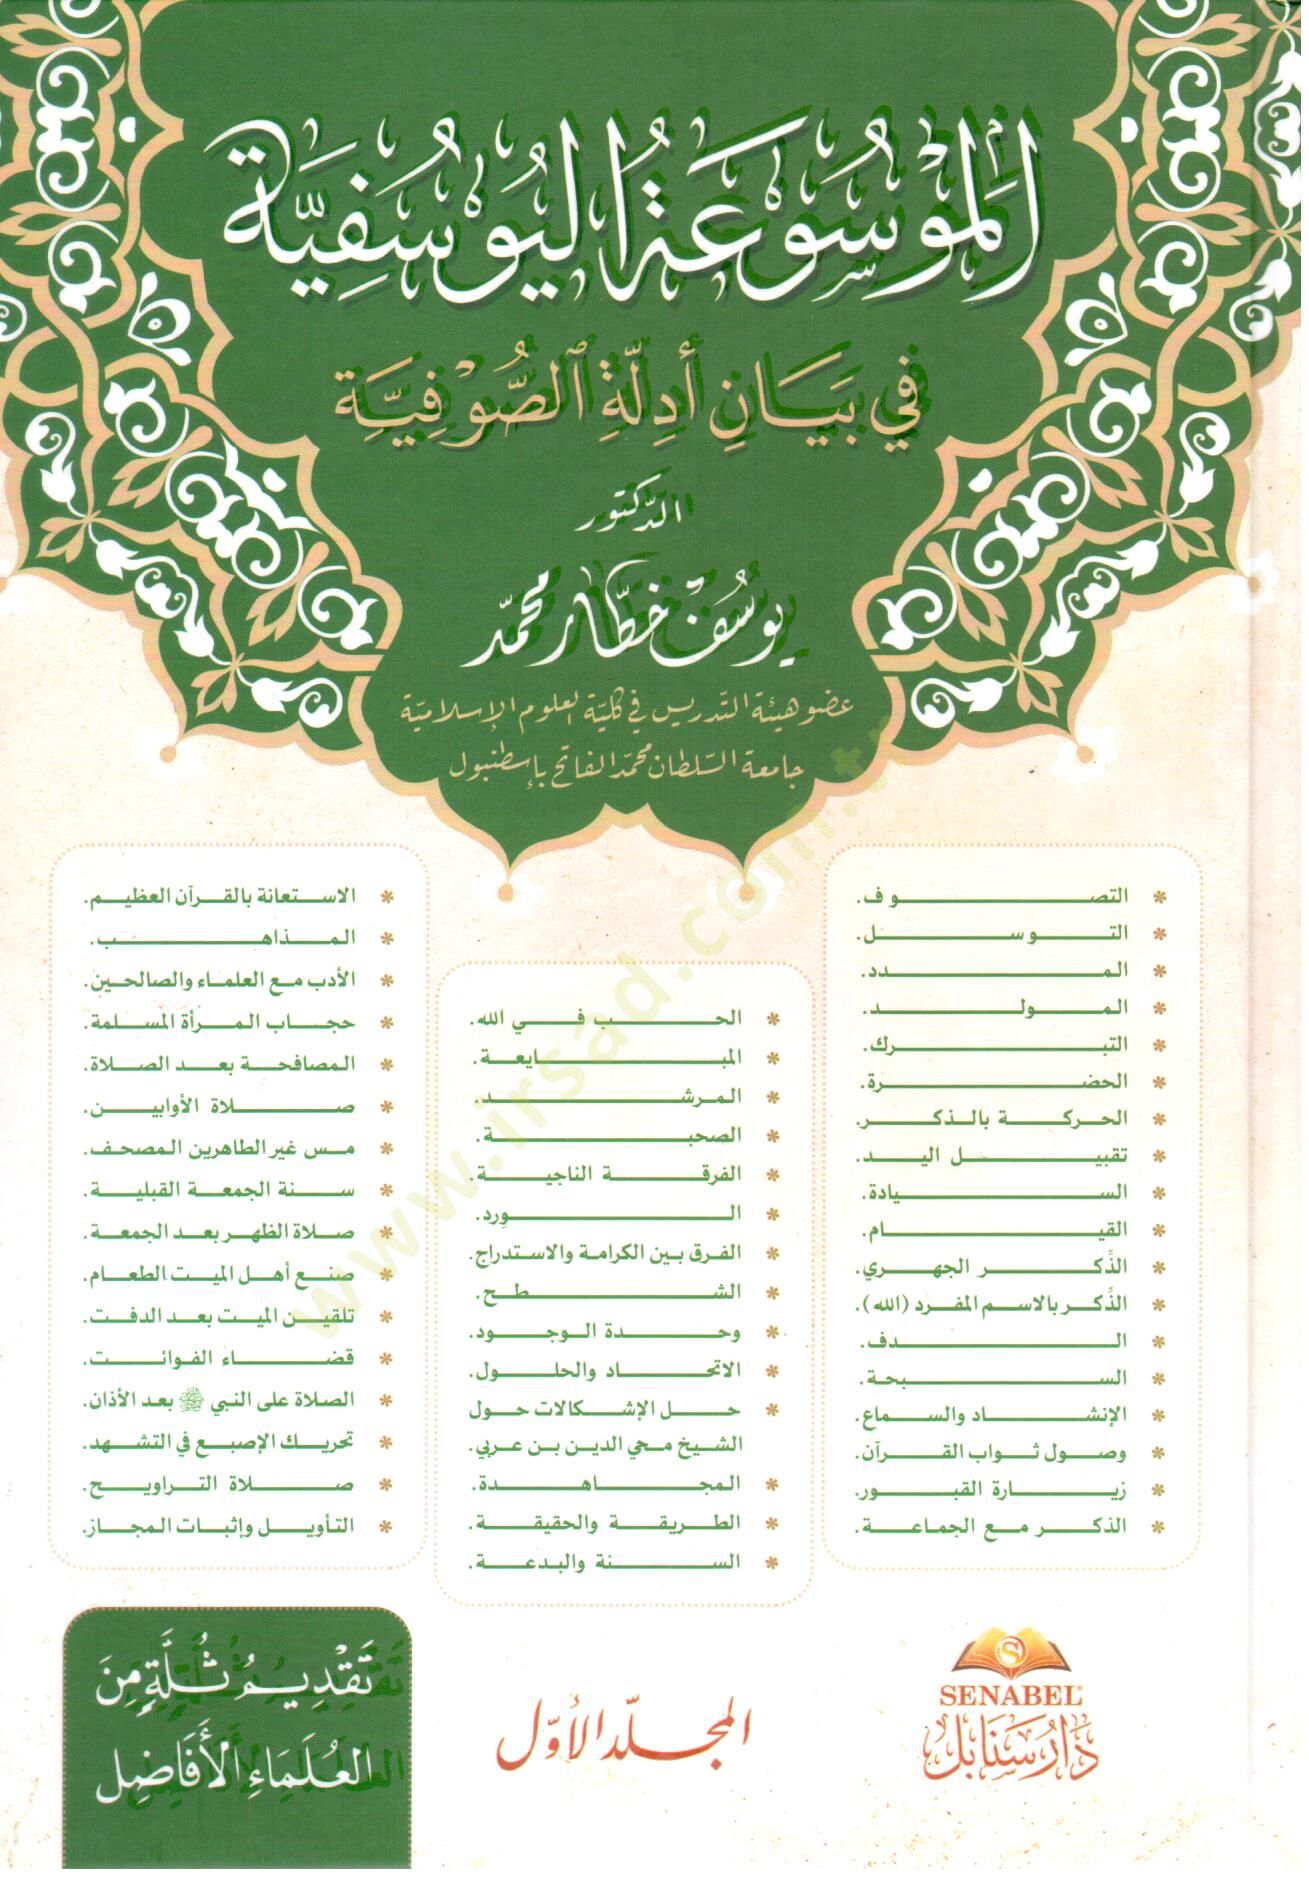 الموسوعة اليوسفية
في بيان أدلة الصوفية
الدكتور
يوسف خطار محمد
عضو هيئة التدريس في كلية العلوم الإسلامية
جامعة السلطان محمد الفاتح بإسطنبول
* التصوف.
* التوسل.
* المدد.
* المولد.
* التبرك.
* الحضرة.
* الحركة بالذكر.
* تقبيل اليد.
* السيادة.
* القيام.
* الذِّكر الجهري.
* الذِّكر بالاسم المفرد (الله).
* الدف.
* السبحة.
* الإنشاد والسماع.
* وصول ثواب القرآن.
* زيارة القبور.
* الذكر مع الجماعة.
* الحب في الله.
* المبايعة.
* المرشد.
* الصحبة.
* الفرقة الناجية.
* الورد.
* الفرق بين الكرامة والاستدراج.
* الشطح.
* وحدة الوجود.
* الاتحاد والحلول.
* حل الإشكالات حول
الشيخ محي الدين بن عربي.
* المجاهدة.
* الطريقة والحقيقة.
* السنة والبدعة.
* الاستعانة بالقرآن العظيم.
* المذاهب.
* الأدب مع العلماء والصالحين.
* حجاب المرأة المسلمة.
* المصافحة بعد الصلاة.
* صلاة الأوابين.
* مس غير الطاهرين المصحف.
* سنة الجمعة القبلية.
* صلاة الظهر بعد الجمعة.
* صنع أهل الميت الطعام.
* تلقين الميت بعد الدفت.
* قضاء الفوائت.
* الصلاة على النبي ﷺ بعد الأذان.
* تحريك الإصبع في التشهد.
* صلاة التراويح.
* التأويل وإثبات المجاز.
SENABEL
دار سنابل
المجلد الأول
تقديم ثلة من
العلماء الأفاضل
www.irsad.com.tr